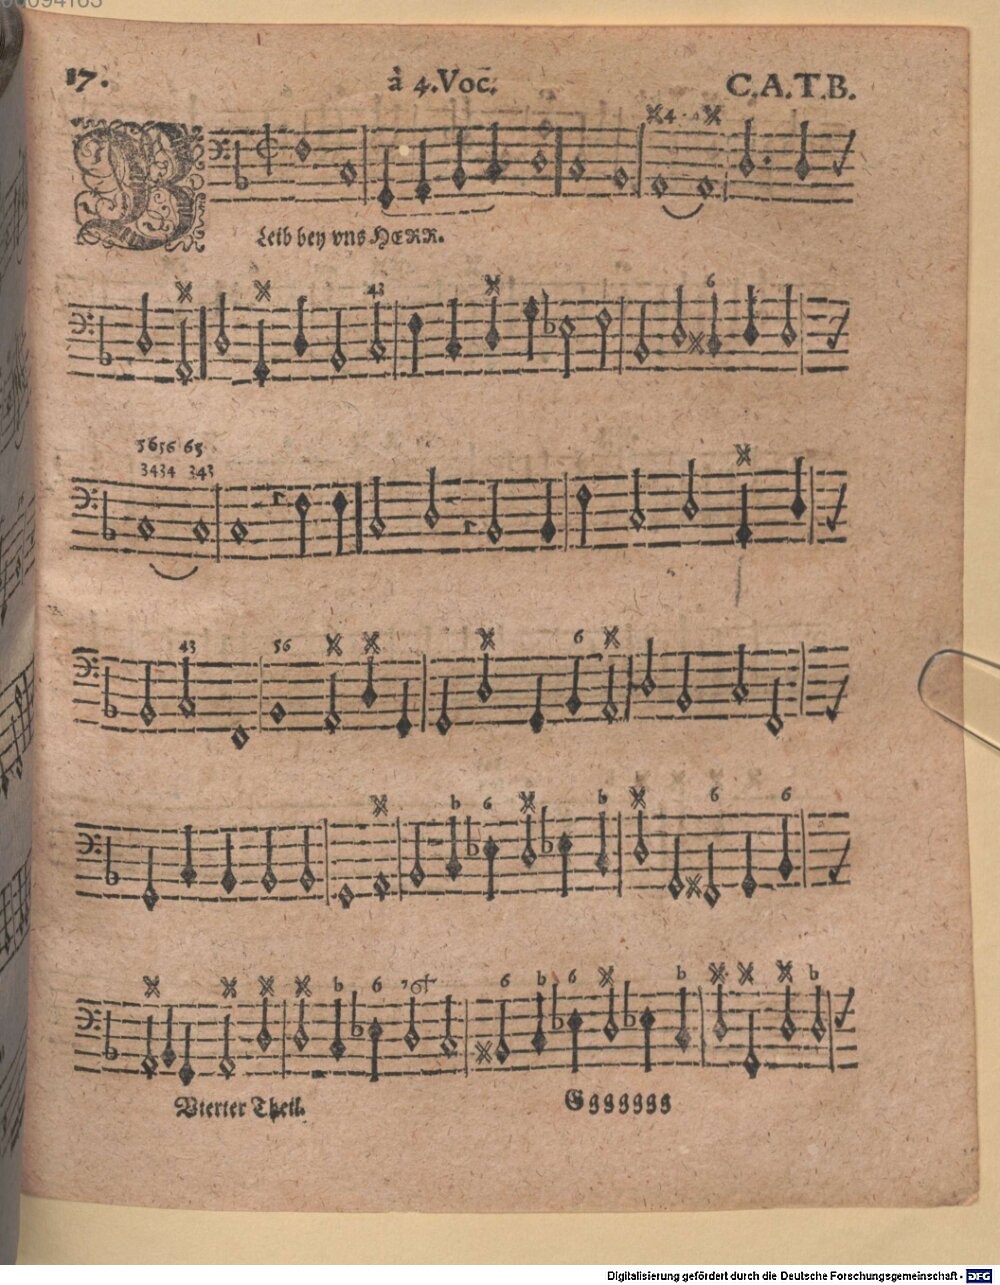 17. à 4. Voc. C.A.T.B.
BLeib bey vns HERR.
4
43
6
5656 65
3434 343
43 56 6
b 6 b 6 6
b 6 6 b 6 b b
Vierter Theil. Ggggggg
Digitalisierung gefördert durch die Deutsche Forschungsgemeinschaft - DFG